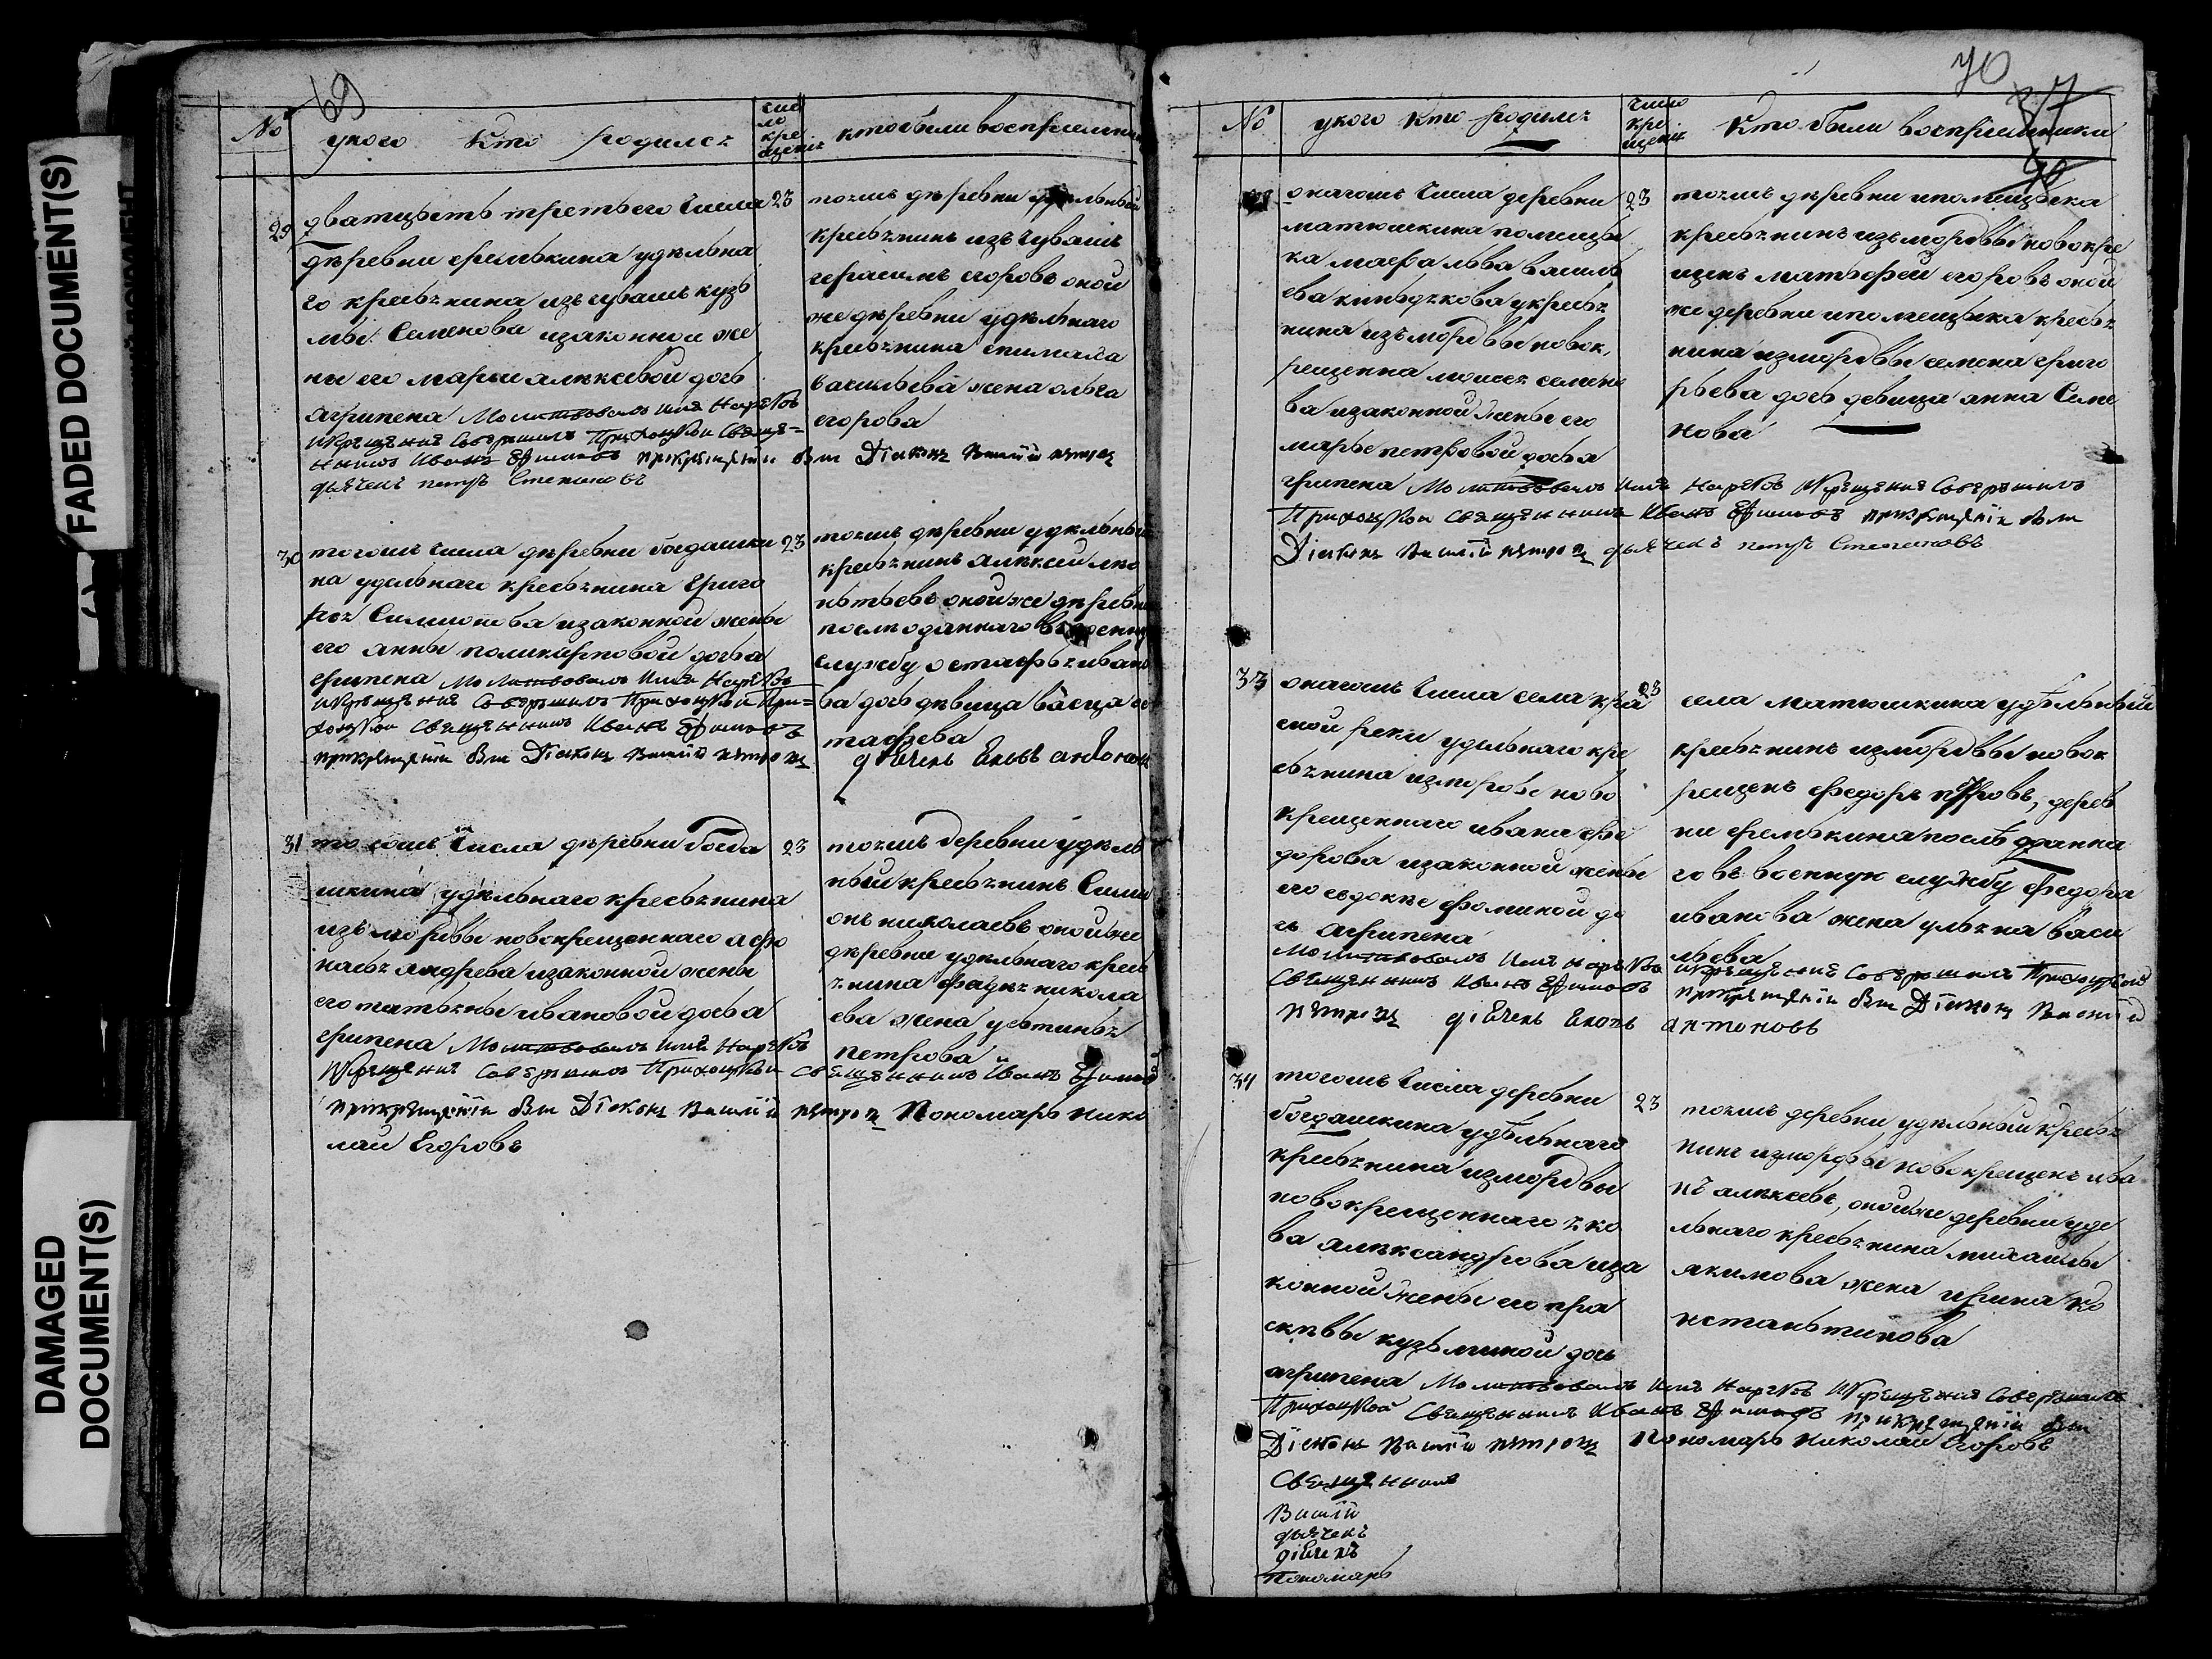 FADED DOCUMENT(S)
DAMAGED
DOCUMENT(S)
69
№ у кого кто родился число крещения кто были восприемники
29 дватцеть третьего числа 23
деревни ерепкина удельна
го кресьянина изъ чувашь кузь
мы Семенова изаконной же
ны его марьи алексевой дочь
агрипена Молитвовалъ имя Нарекъ
Икрещение Совершилъ Приходской Свяще=
нникъ Иванъ Ефимовъ прикрещении был Диаконъ Василий петровъ
дьячекъ петръ Степановъ
тоежъ деревни удельный
кресьянинъ изъ чувашъ
герасимъ егоровъ оной
же деревни удельнаго
кресьянина
васильева жена ольга
егорова
30 тогожъ числа деревни богдашки 23
на удельнаго кресьянина григо
рья Симионова изаконной жены
его анны поликарповой дочь а
грипена Молитвовалъ Имя Нарекъ
Икрещение Совершилъ Приходской При=
ходской Священникъ Иванъ Ефимовъ
прикрещении был Диаконъ Василий петровъ
тоежъ деревни удельный
кресьянинъ алексей лео
нтьевъ оной же деревни
послеоданнаго в военную
службу остафья ивано
ва дочь девица васса ос
тафева
дьячекъ Яковъ антоновъ
31 тогожъ числа деревни богда 23
шкина удельнаго кресьянина
изъ мордвы новокрещеннаго афо
насья андрева изаконной жены
его татьяны ивановой дочь а
грипена Молитвовалъ имя Нарекъ
Икрещение Совершилъ Приходской священникъ Иванъ Ефимовъ
прикрещении был Диаконъ Василий петровъ Пономарь нико
лай Егоровъ
тоежъ деревни удель
ный кресьянинъ Сими
онъ николаевъ оной же
деревни удельнаго кресь
янина фадея никола
ева жена устинья
петрова
70
37
№ у кого кто родился число крещения кто были восприемники
онагожъ числа деревни 23
матюшкина помещи
ка маера льва василь
ева киндякова у кресья
нина изъ мордвы новок
рещенна моисея семено
ва изаконной жены его
марье петровой дочь а
грипена Молитвовалъ Имя Нарекъ Икрещение Совершилъ
Приходской Священникъ Иванъ Ефимовъ прикрещении был
Диаконъ Василий петровъ дьячекъ петръ Степановъ
тоежъ деревни и помещика
кресьянинъ изъ мордвы новокре
щенъ матьфей егоровъ оной
же деревни и помещика кресья
нина измордвы семена григо
рьева дочь девица анна Семе
нова
33 онагожъ числа села кра 23
сной реки удельнаго кре
сьянина измордвы ново
крещеннаго ивана фе
дорова изаконной жены
его евдокие фоминой до
чь агрипена
Молитвовалъ Имя нарекъ Икрещение Совершилъ Приходской
Священникъ Иванъ Ефимовъ прикрещении был Диаконъ Василий
петровъ дьячекъ Яковъ антоновъ
села матюшкина удельный
кресьянинъ измордвы новок
рещенъ федоръ петровъ, дерев
ни ерепкина после оданна
го въ военную службу федора
иванова жена ульяна васи
льева
34 тогожъ числа деревни 23
богдашкина удельнаго
кресьянина измордвы
новокрещеннаго яко
ва александрова иза
конной жены его пра
сковьи кузьминой дочь
агрипена Молитвовалъ имя Нарекъ Икрещение Совершилъ
Приходской Священникъ Иванъ Ефимовъ прикрещении был
Диаконъ Василий петровъ Пономарь Николай Егоровъ
тоежъ деревни удельный кресья
нинъ измордвы новокрещенъ ива
нъ алексевъ, оной же деревни уде
льнаго кресьянина михаилы
якимова жена ирина ко
нстаньтинова
Священникъ
Василий
дьячекъ
дьячекъ
Пономарь